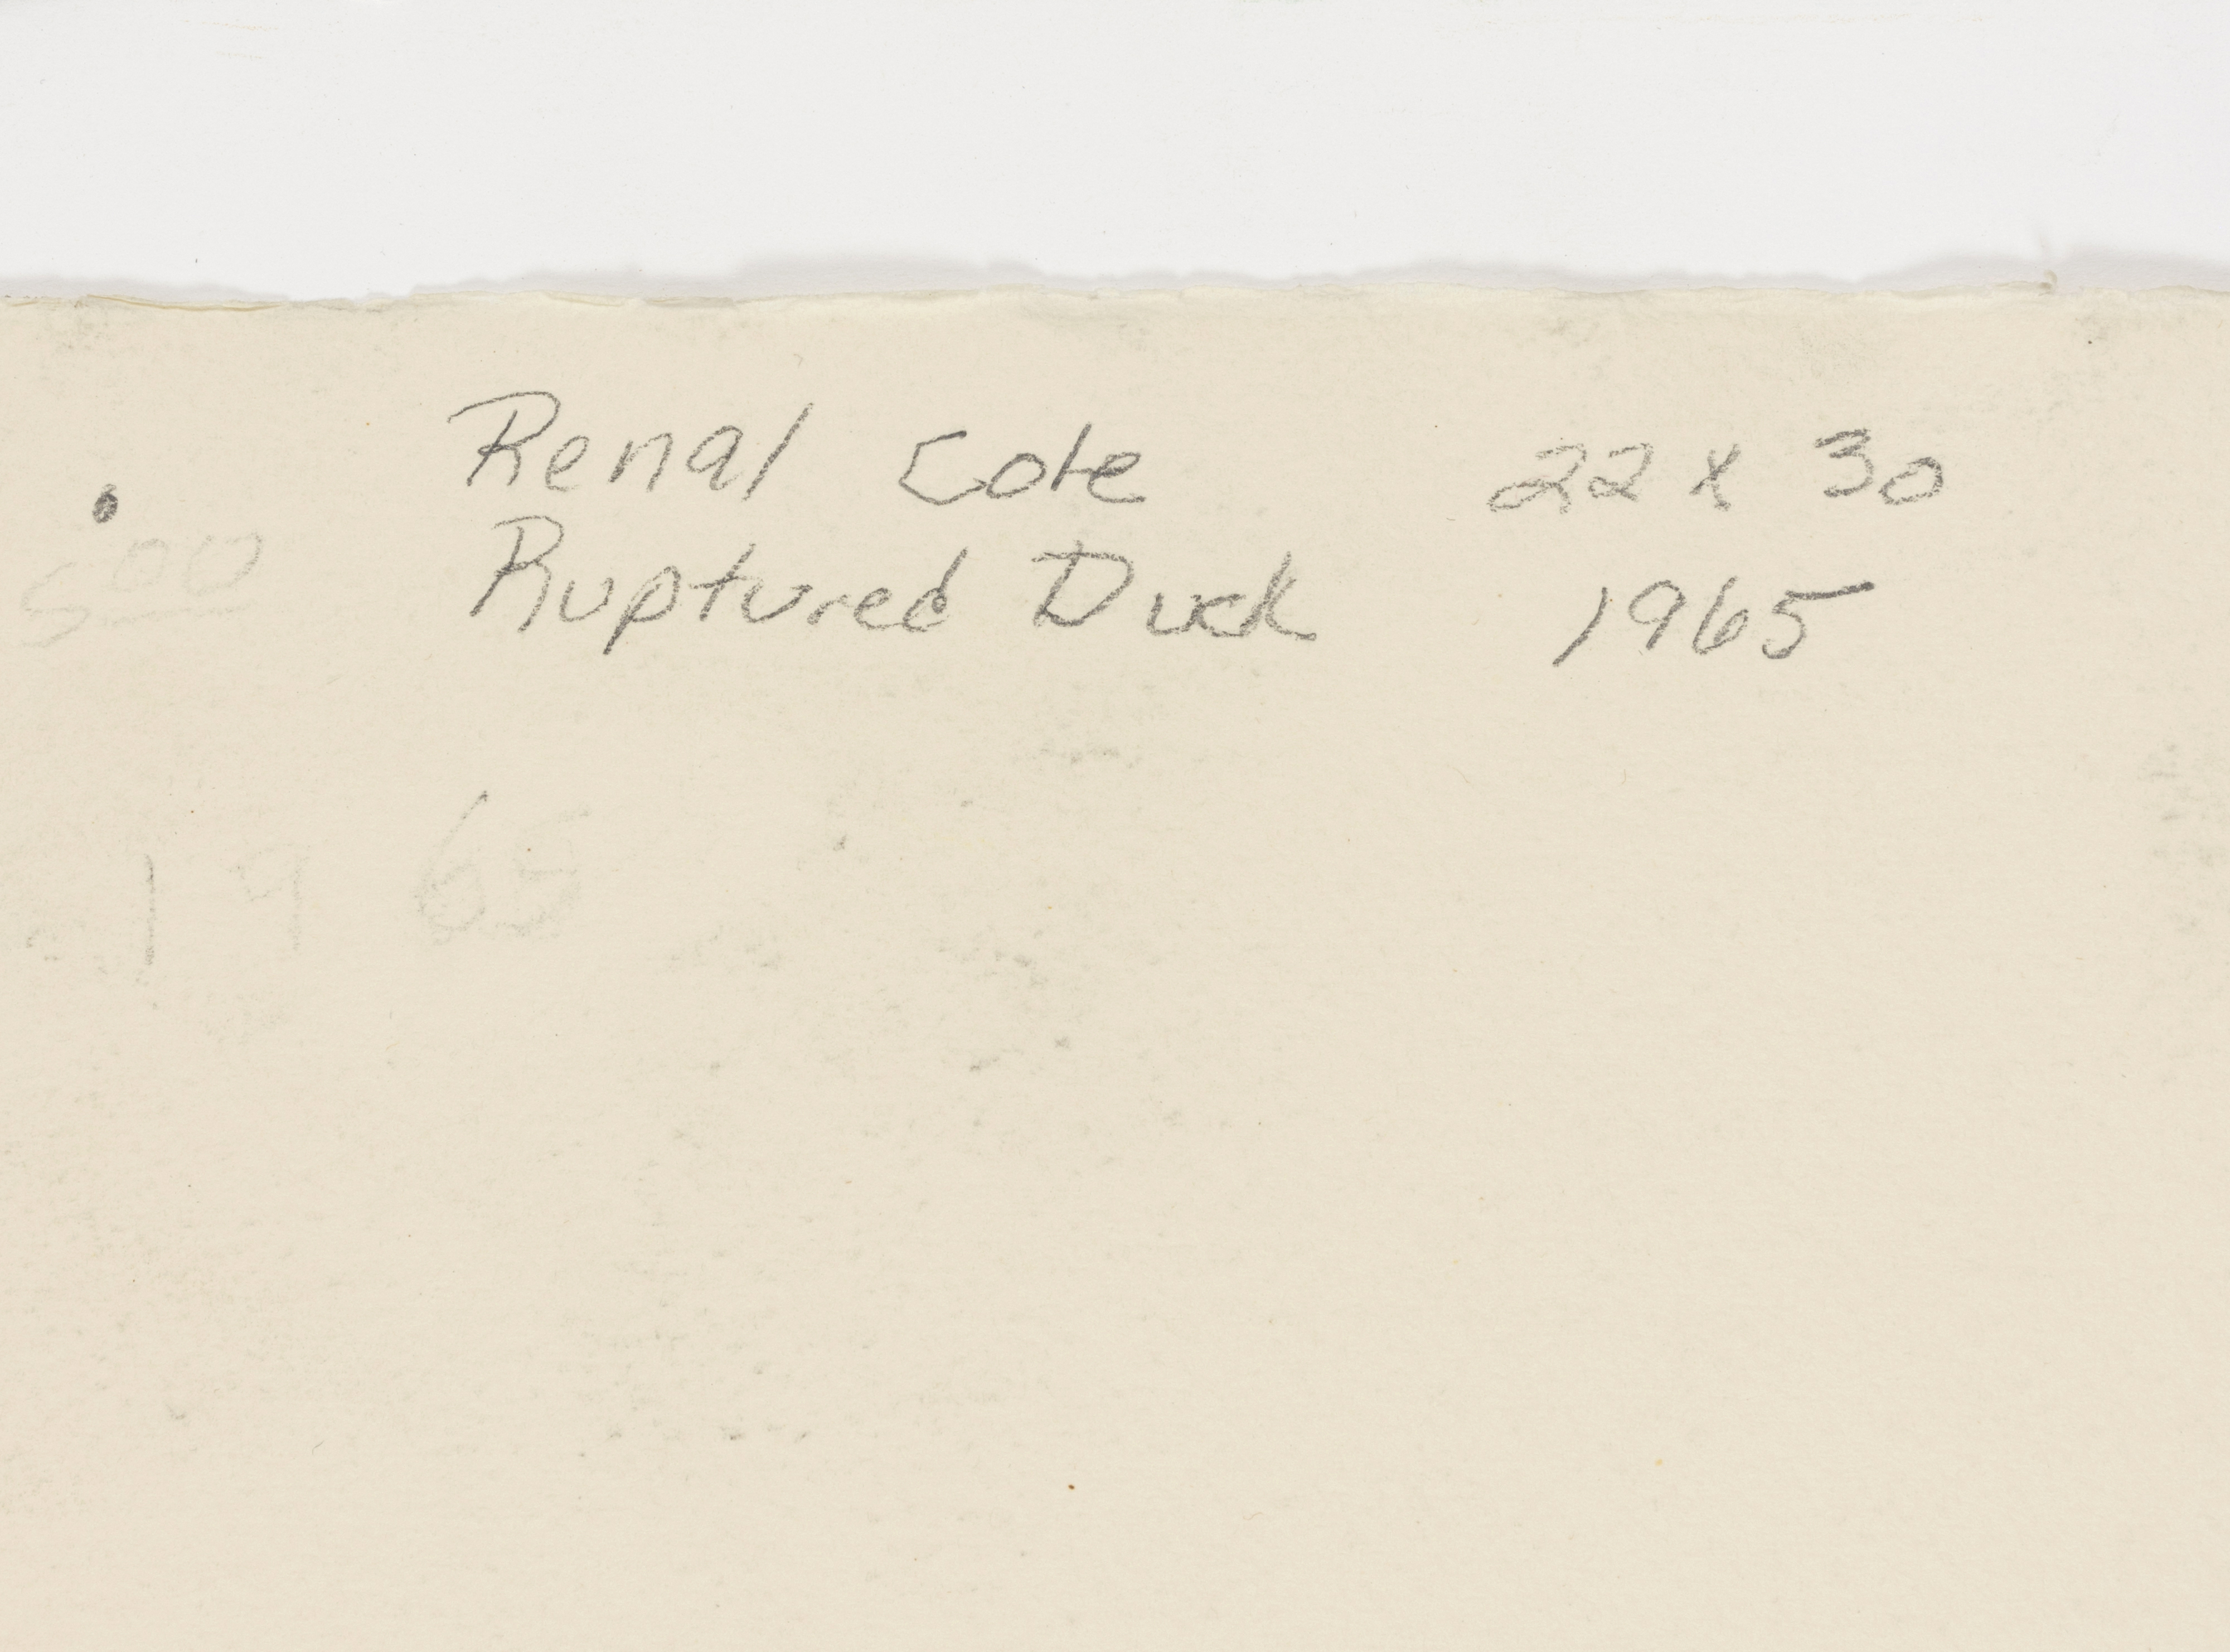 Renal Cote 22 x 30
Ruptured Duck 1965
500
1965